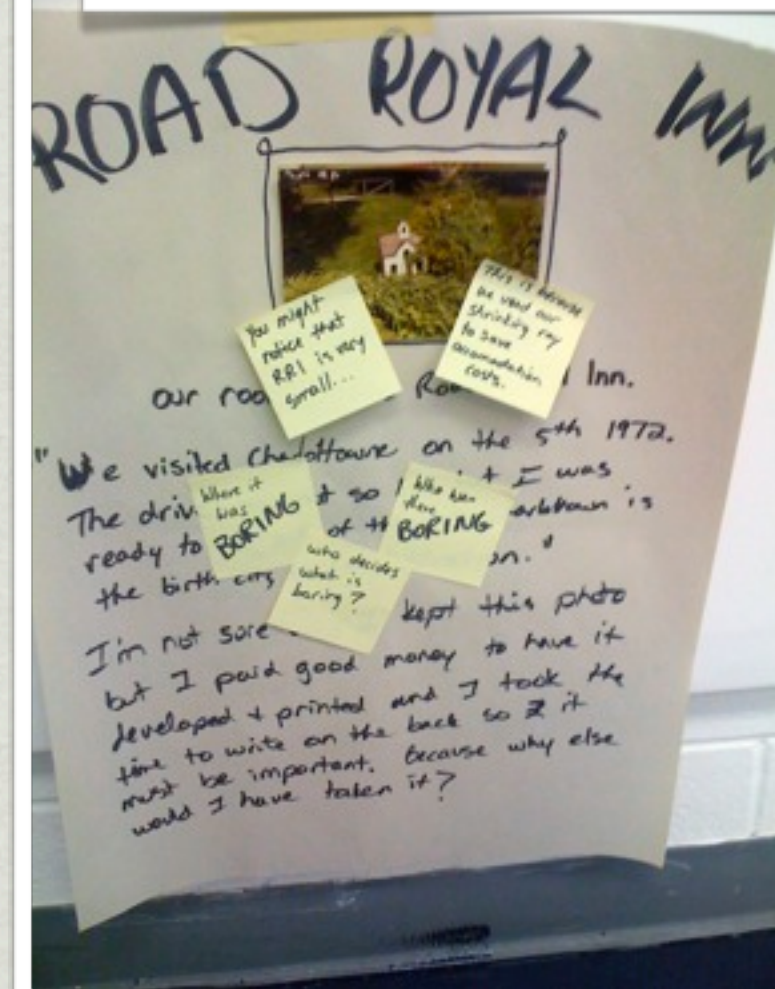 ROAD ROYAL INN
You might
notice that
RRI is very
small...
This is because
we used our
shrinking ray
to save
accomodation
costs.
our roo Roa Inn.
"We visited Charlottowne on the 5th 1972.
The driv so I was
ready to of th is
the birth city on."
Where it
was
BORING
who was
there
BORING
who decides
what is
boring?
I'm not sure kept this photo
but I paid good money to have it
developed + printed and I took the
time to write on the back so it
must be important. Because why else
would I have taken it?